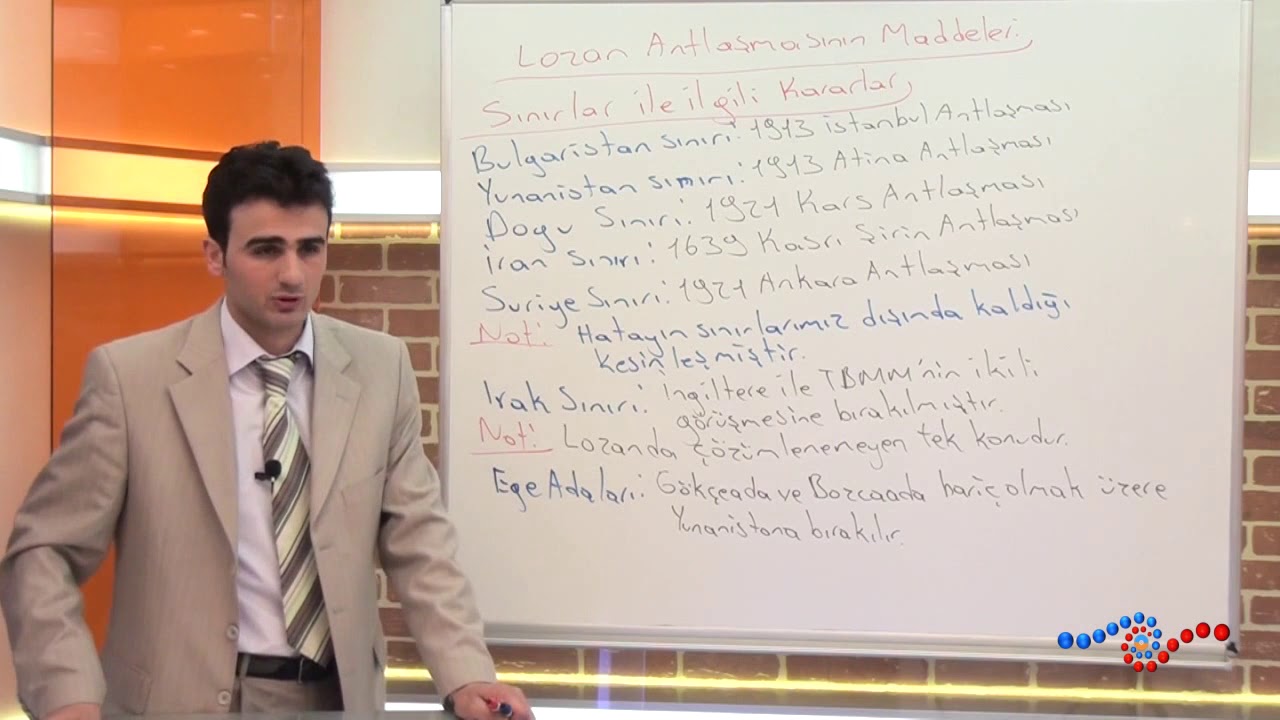 Lozan Antlaşmasının Maddeleri
Sınırlar ile ilgili Kararlar
Bulgaristan sınırı: 1913 istanbul Antlaşması
Yunanistan sınırı: 1913 Atina Antlaşması
Doğu Sınırı: 1921 Kars Antlaşması
İran Sınırı: 1639 Kasrı Şirin Antlaşması
Suriye Sınırı: 1921 Ankara Antlaşması
Not: Hatayın sınırlarımız dışında kaldığı
kesinleşmiştir.
Irak Sınırı: İngiltere ile TBMM'nin ikili
görüşmesine bırakılmıştır.
Not: Lozanda çözümleneneyen tek konudur.
Ege Adaları: Gökçeada ve Bozcaada hariç olmak üzere
Yunanistana bırakılır.